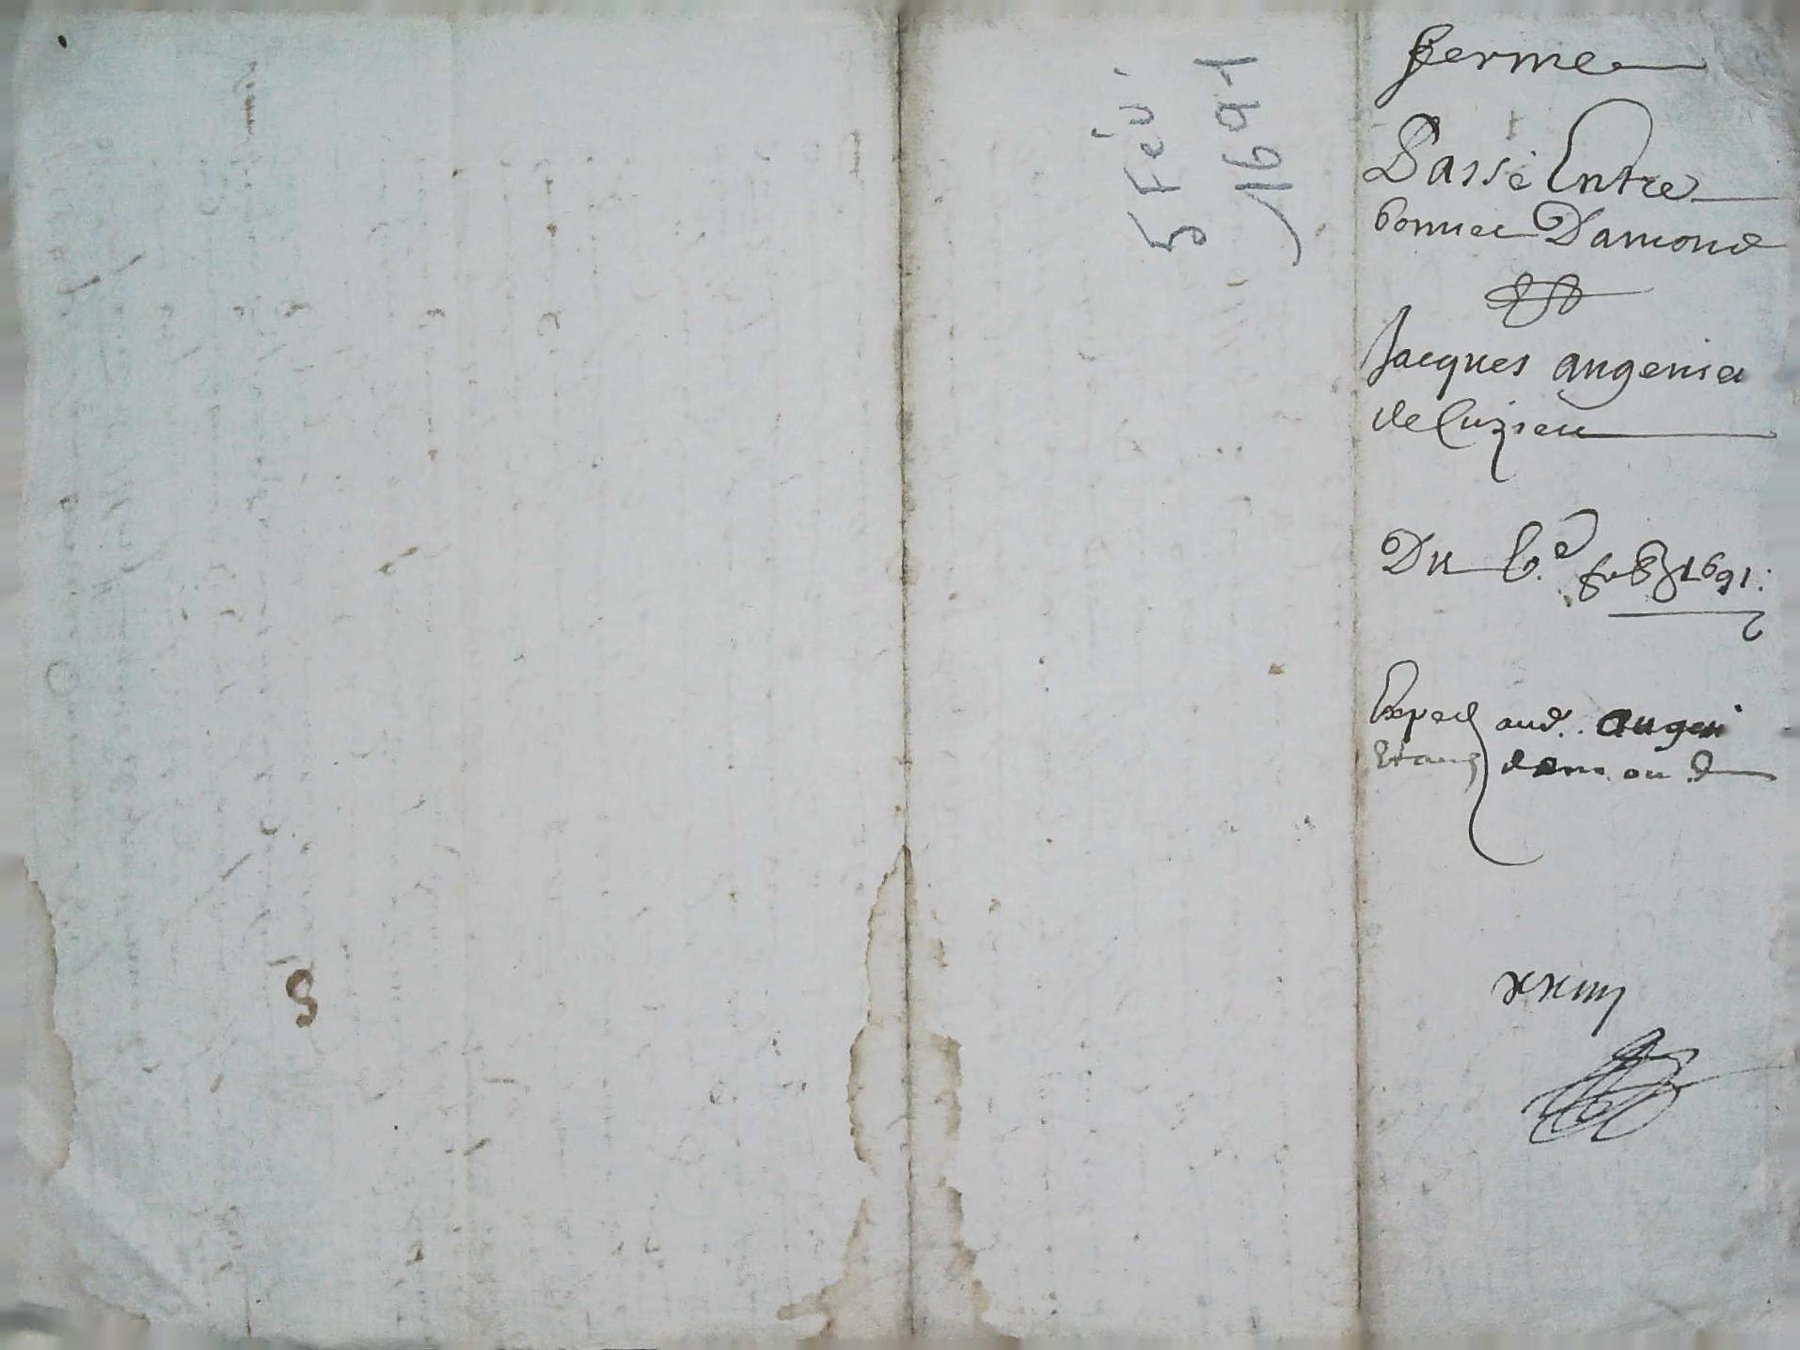 5 Fév.
1691
ferme
Passé Entre
bonnet Damond
&
Jacques angenia
de Cuzieu
Du b.e feb 1691.
Exped aud. augeni
Et aud damond